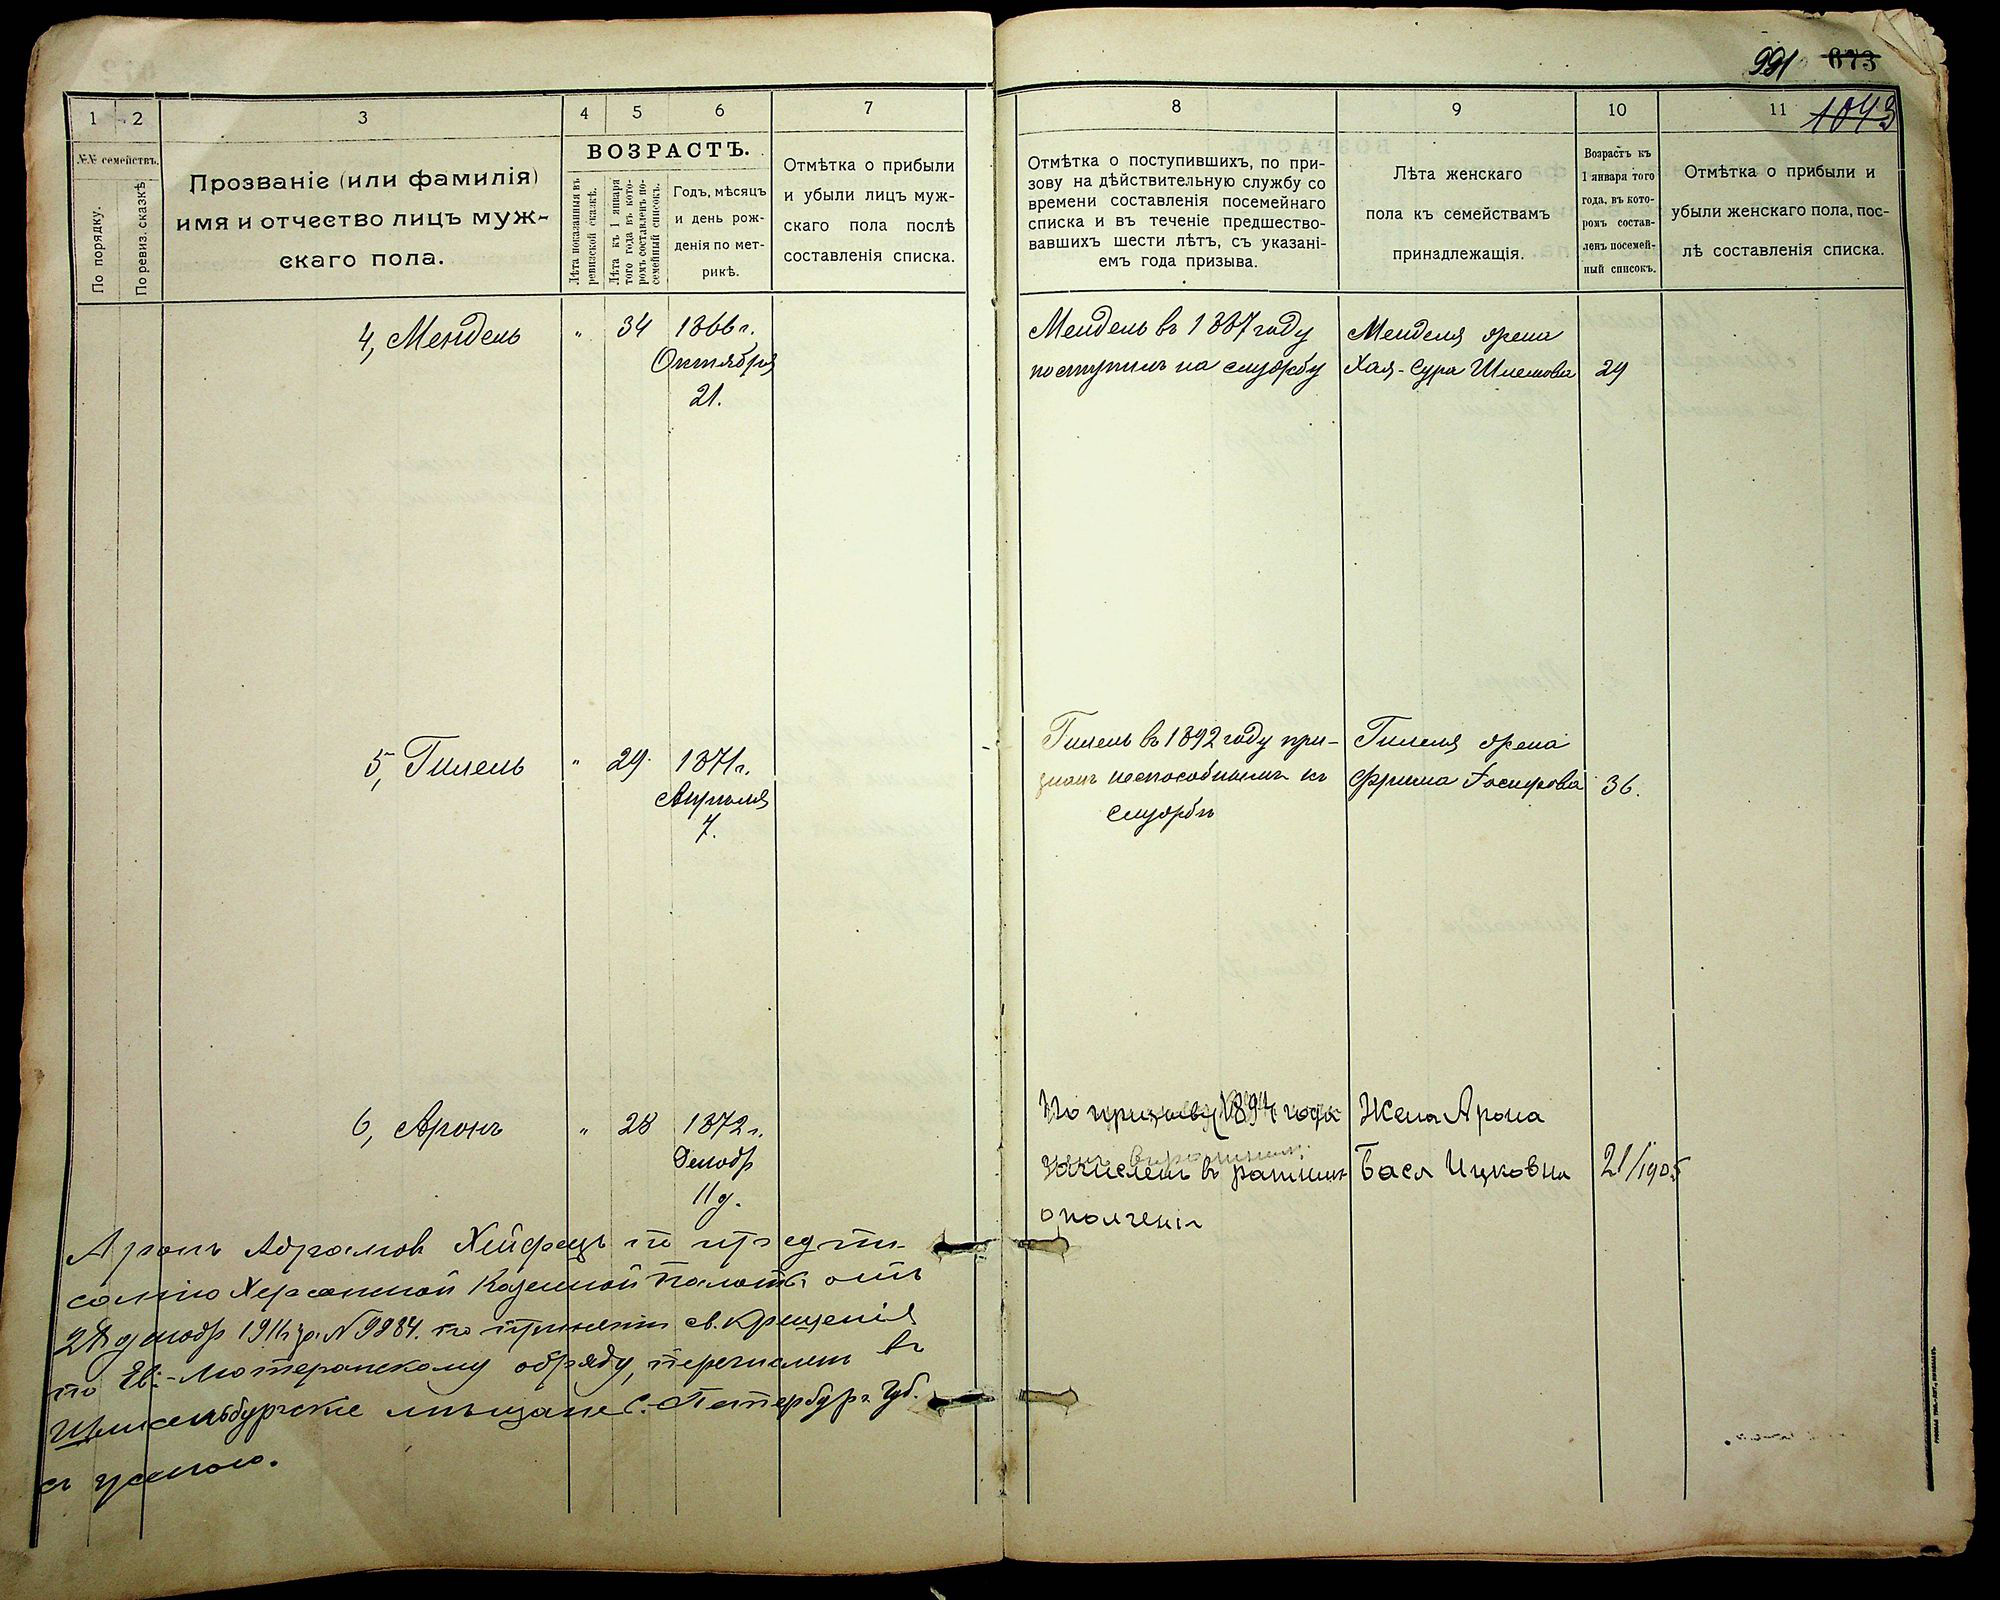 991 673
1 2 3 4 5 6 7
№№ семействъ.
По порядку.
По ревиз. сказкѣ
Прозваніе (или фамилія)
имя и отчество лицъ муж-
скаго пола.
ВОЗРАСТЪ.
Лѣта показанныя въ
ревизской сказкѣ.
Лѣта къ 1 января
того года въ кото-
ромъ составленъ по-
семейный списокъ.
Годъ, мѣсяцъ
и день рож-
денія по мет-
рикѣ.
Отмѣтка о прибыли
и убыли лицъ муж-
скаго пола послѣ
составленія списка.
8 9 10 11 1043
Отмѣтка о поступившихъ, по при-
зову на дѣйствительную службу со
времени составленія посемейнаго
списка и въ теченіе предшество-
вавшихъ шести лѣтъ, съ указані-
емъ года призыва.
Лѣта женскаго
пола къ семействамъ
принадлежащія.
Возрастъ къ
1 января того
года, въ кото-
ромъ состав-
ленъ посемей-
ный списокъ.
Отмѣтка о прибыли и
убыли женскаго пола, пос-
лѣ составленія списка.
4, Мендель " 34 1866 г.
Октября
21.
Мендель въ 1887 году
поступилъ на службу
Менделя жена
Хая-Сура Шлемова 29
5, Гилель " 29. 1871 г.
Апрѣля
7.
Гилель въ 1892 году при-
знанъ неспособнымъ къ
службѣ
Гилеля жена
Фрима Іосифова 36.
6, Аронъ " 28 1872 г.
Декабр
11 д.
По призыву 1894 года
зачисленъ въ ратники
ополченія
Жена Арона
Бася Ицковна 21/1905
Аронъ Абрамовъ Хейфецъ по предпи-
санію Херсонской Казенной Палаты отъ
декабр 1911 за № 9884. по принятіи св. крещенія
по Ев.-Лютеранскому обряду, перечисленъ въ
Шлиссельбургскіе мѣщане С.-Петербург. Губ.
съ женою.